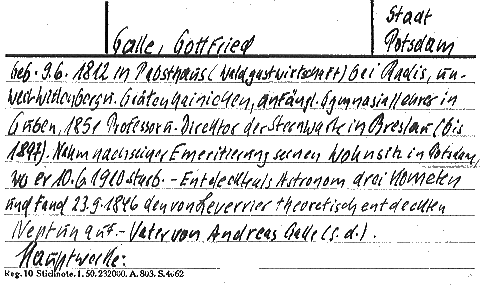 Stadt
Galle, Gottfried
Potsdam
geb. 9.6. 1812 in Pabsthaus (Waldgastwirtschaft) bei Radis, un-
weit Wittenberg u. Gräfenhainichen, anfängl. Gymnasiallehrer in
Guben, 1851 Professor u. Direktor der Sternwarte in Breslau (bis
1897). Nahm nach seiner Emeritierung seinen Wohnsitz in Potsdam,
wo er 10.6.1910 starb. - Entdeckte als Astronom drei Kometen
und fand 23.9.1846 den von Leverrier theoretisch entdeckten
Neptun auf. - Vater von Andreas Galle (s.d.).
Hauptwerke:
Reg. 10 Stichnote. I. 50. 232000. A. 803. S. 4062